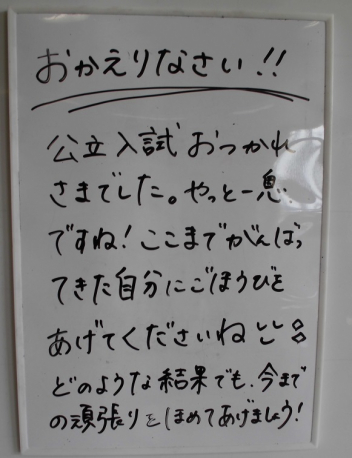 おかえりなさい!!
公立入試おつかれ
さまでした。やっと一息
ですね!ここまでがんばっ
てきた自分にごほうびを
あげてくださいね
どのような結果でも、今まで
の頑張りをほめてあげましょう!